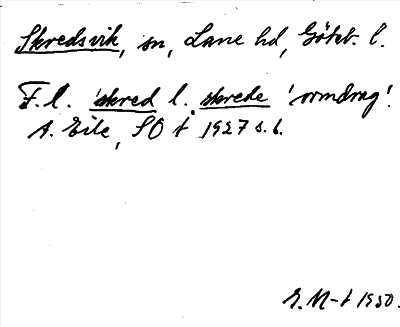 Skredsvik, sn, Lane hd, Göteb. l.
F. l. skred l. skrede 'ormdrag'.
A. Eile, SOÅ 1927 s. 6.
G. M-t 1950.